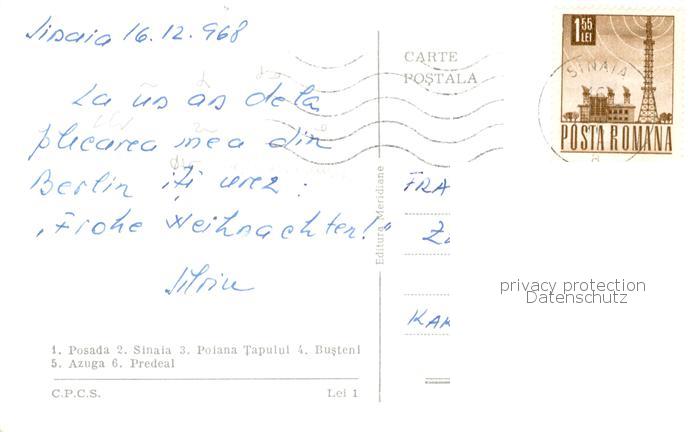 Sinaia 16.12.968
La un an de la
plecarea mea din
Berlin îți urez:
„Frohe Weihnachten!"
CARTE
POȘTALA
1 55
LEI
SINAIA
POSTA ROMANA
Editura Meridiane
FRA
KAR
privacy protection
Datenschutz
1. Posada 2. Sinaia 3. Poiana Țapului 4. Bușteni
5. Azuga 6. Predeal
C.P.C.S. Lei 1